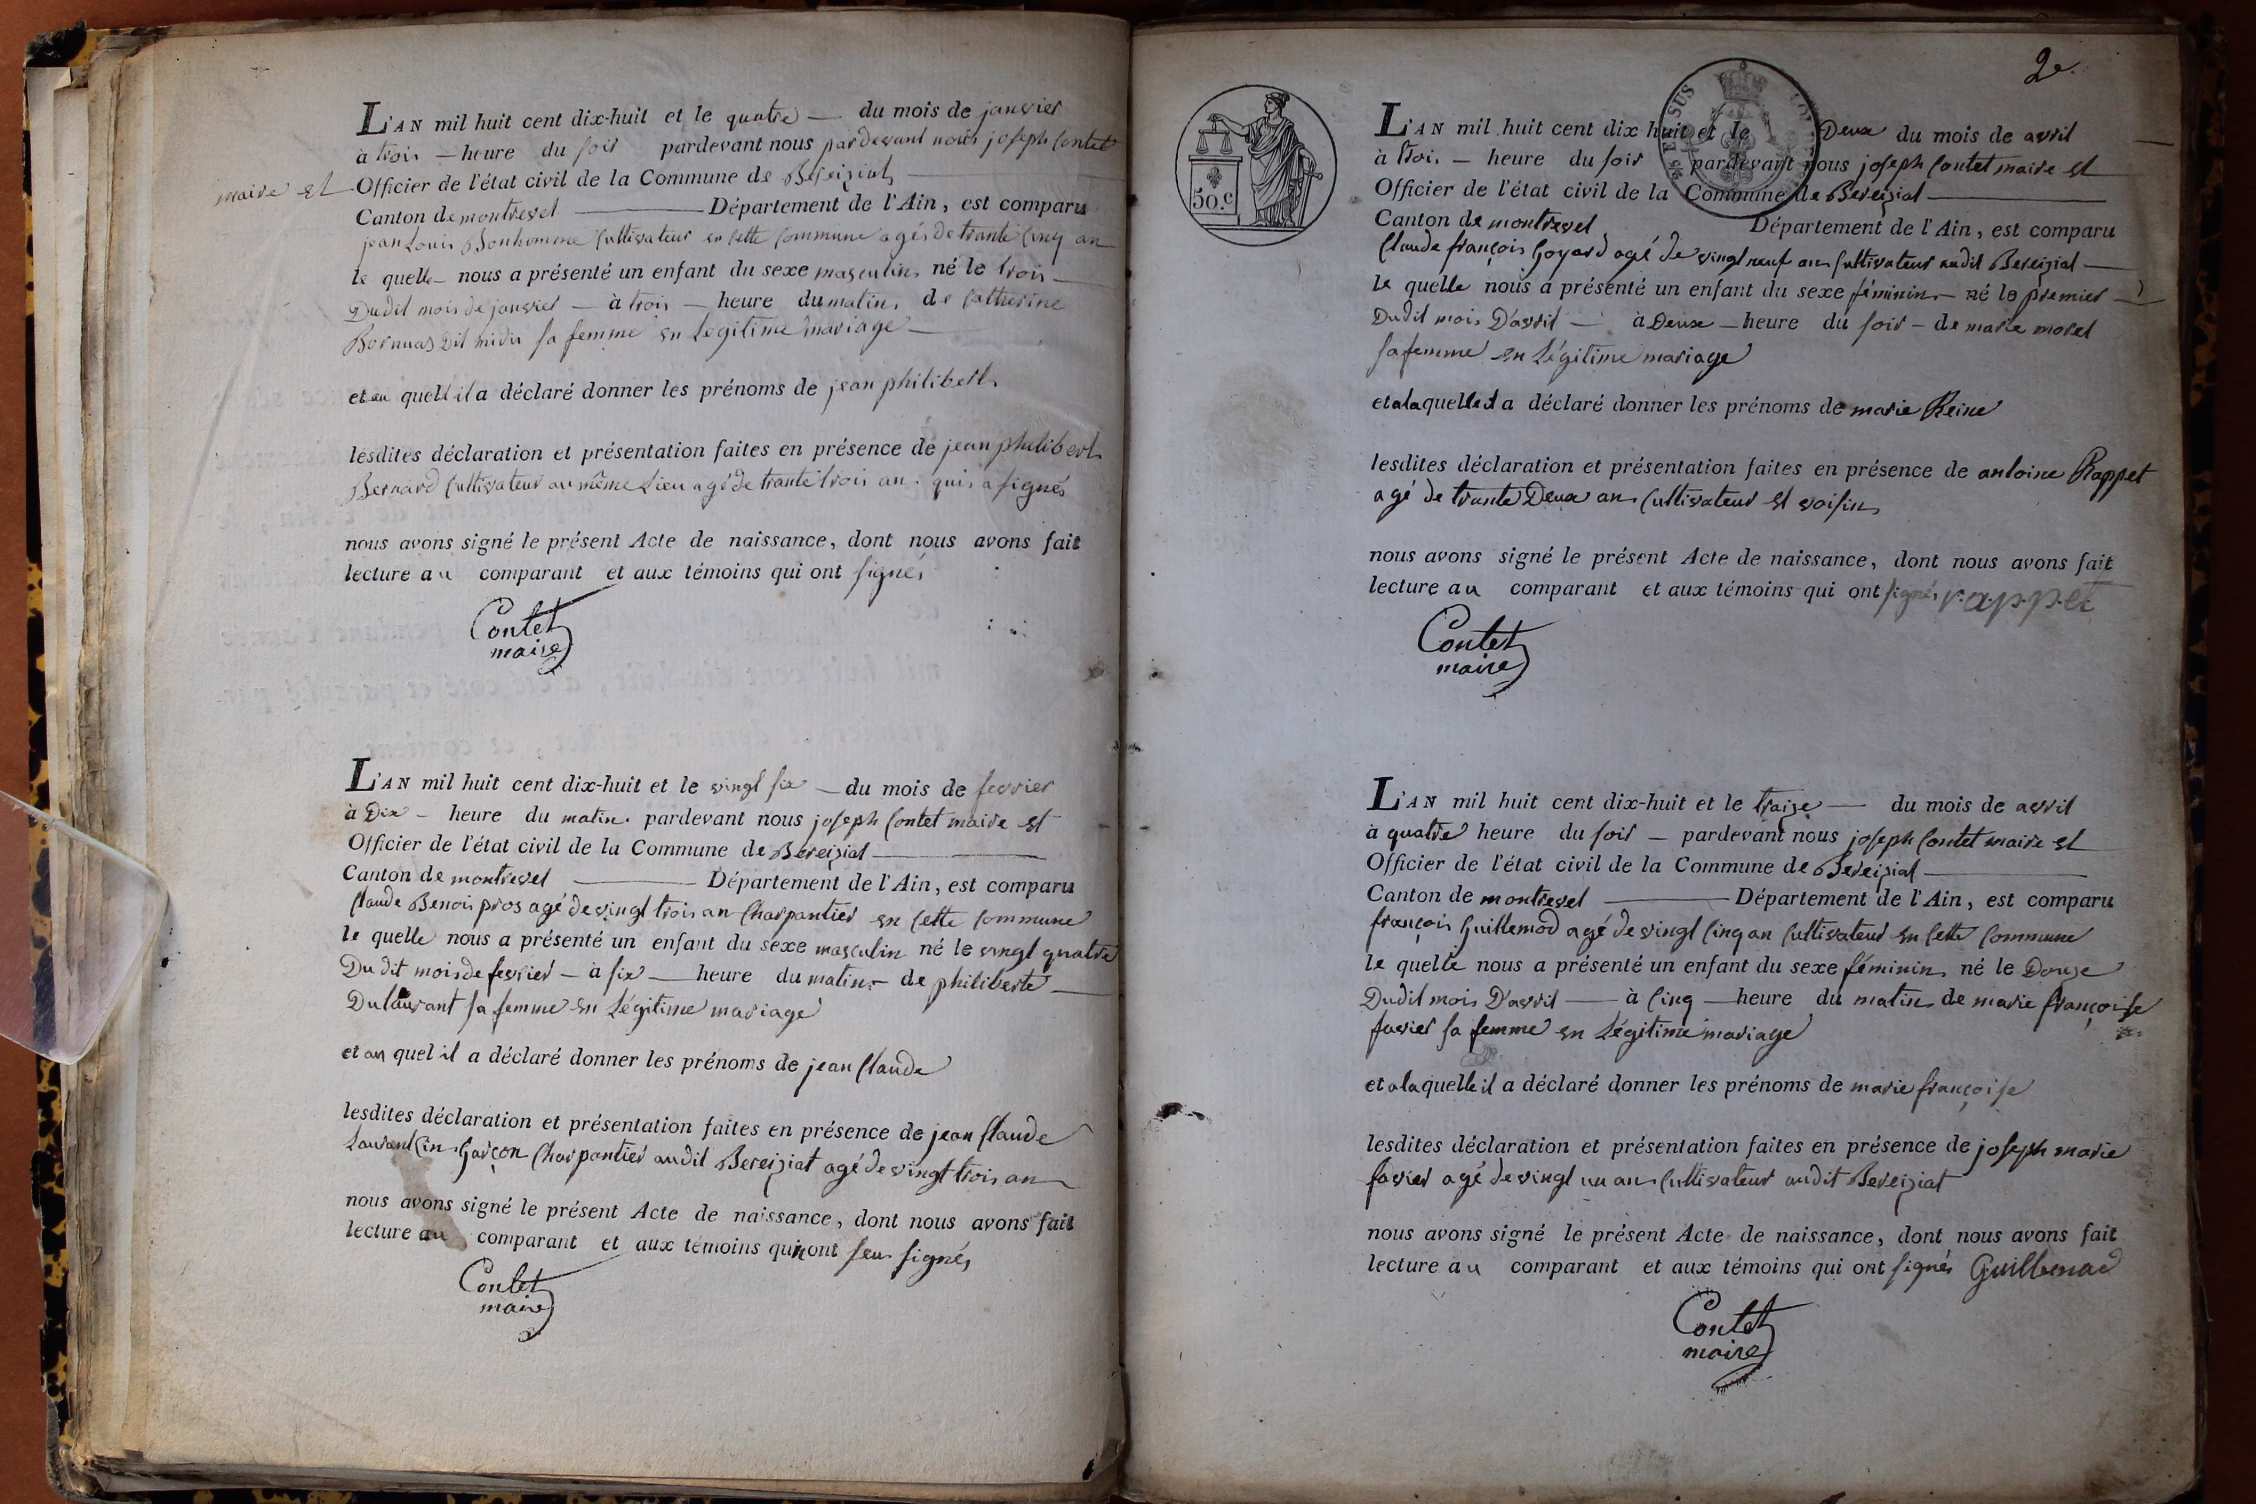 L'AN mil huit cent dix-huit et le quatre — du mois de janvier
à trois — heure du soir pardevant nous pardevant nous joseph Contet
maire et Officier de l'état civil de la Commune de Bereiziat
Canton de montrevel — Département de l'Ain, est comparu
jean Louis Bonhomme Cultivateur en cette Commune agés de trante Cinq an
le quelle nous a présenté un enfant du sexe masculin né le trois
Dudit mois de janvier — à trois — heure du matin de Catherine
sa femme en Légitime mariage
et au quell il a déclaré donner les prénoms de jean philibert
lesdites déclaration et présentation faites en présence de jean philibert
Bernard Cultivateur au même Lieu agé de trante trois an qui a signés
nous avons signé le présent Acte de naissance, dont nous avons fait
lecture au comparant et aux témoins qui ont signés
Contet
maire
L'AN mil huit cent dix-huit et le vingt six — du mois de fevrier
à Dix — heure du matin pardevant nous joseph Contet maire et
Officier de l'état civil de la Commune de Bereiziat
Canton de montrevel — Département de l'Ain, est comparu
Claude Benois pros agé de vingt trois an Charpantier en cette Commune
le quelle nous a présenté un enfant du sexe masculin né le vingt quatre
Du dit mois de fevrier — à six — heure du matin — de philiberte
Dulaurant sa femme en Légitime mariage
et au quel il a déclaré donner les prénoms de jean Claude
lesdites déclaration et présentation faites en présence de jean Claude
Laurancin Garçon Charpantier audit Bereiziat agé de vingt trois an
nous avons signé le présent Acte de naissance, dont nous avons fait
lecture au comparant et aux témoins qui nont seu signés
Contet
maire
2e.
50.c
L'AN mil huit cent dix huit et le Deux du mois de avril
à trois — heure du soir pardevant nous joseph Contet maire et
Officier de l'état civil de la Commune de Bereiziat
Canton de montrevel Département de l'Ain, est comparu
Claude françois Goyard agé de vingt neuf an Cultivateur audit Bereiziat
le quelle nous a présenté un enfant du sexe féminin — né le premier
Dudit mois D'avril — à Deux — heure du soir — de marie morel
sa femme en Légitime mariage
et a la quelle il a déclaré donner les prénoms de marie Reine
lesdites déclaration et présentation faites en présence de antoine Rappet
agé de trante Deux an Cultivateur et voisin
nous avons signé le présent Acte de naissance, dont nous avons fait
lecture au comparant et aux témoins qui ont signés rappet
Contet
maire
L'AN mil huit cent dix-huit et le traize — du mois de avril
à quatre heure du soir — pardevant nous joseph Contet maire et
Officier de l'état civil de la Commune de Bereiziat
Canton de montrevel — Département de l'Ain, est comparu
françois Guillemod agé de vingt Cinq an Cultivateur en cette Commune
le quelle nous a présenté un enfant du sexe féminin né le Douze
Dudit mois D'avril — à Cinq — heure du matin de marie françoise
favier sa femme en Légitime mariage
et a la quelle il a déclaré donner les prénoms de marie françoise
lesdites déclaration et présentation faites en présence de joseph marie
favier agé de vingt un an Cultivateur audit Bereiziat
nous avons signé le présent Acte de naissance, dont nous avons fait
lecture au comparant et aux témoins qui ont signés Guillemod
Contet
maire